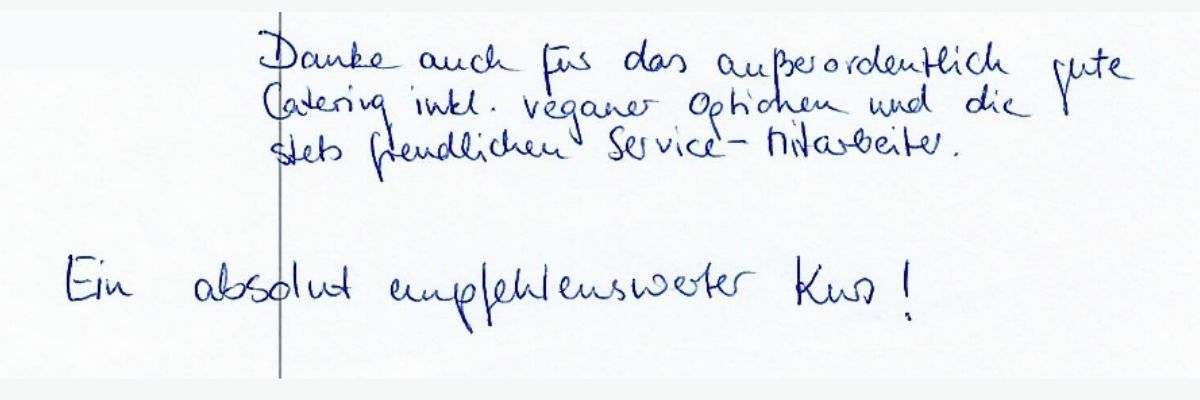 Danke auch für das außerordentlich gute
Catering inkl. veganer Optionen und die
stets freundlichen Service-Mitarbeiter.
Ein absolut empfehlenswerter Kurs!